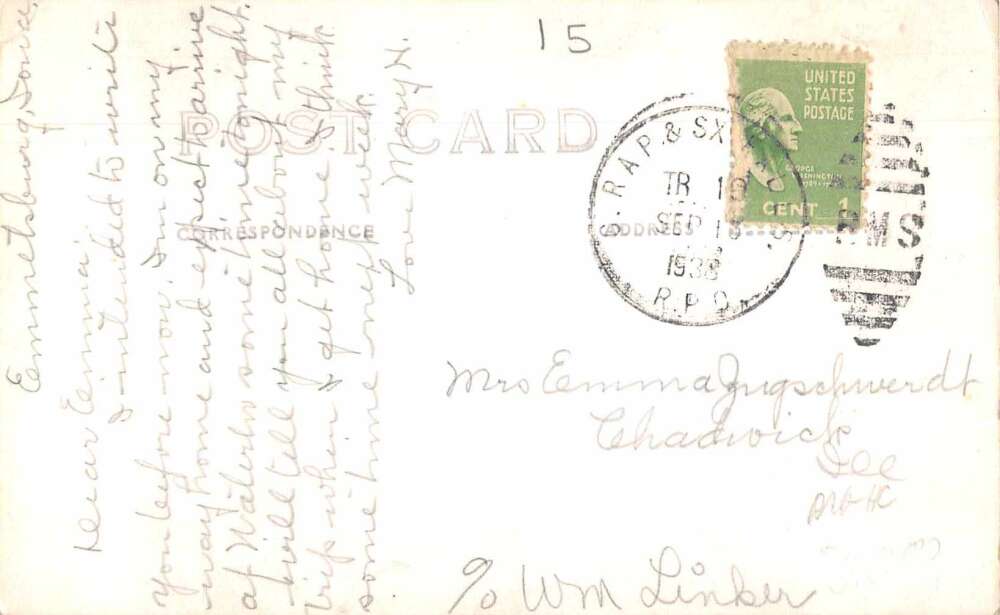 Emmetsburg, Iowa,
Dear Emma:
I intended to write
you before now. I'm on my
way home and expect to arrive
at Waterloo sometime tonight.
Will tell you all about my
trip when I get home I think
some time next week.
Love Mary H.
15
POST CARD
CORRESPONDENCE
ADDRESS
RAP. & SX.
TR 10
SEP
1938
R.P.O.
RMS
UNITED
STATES
POSTAGE
GEORGE
WASHINGTON
CENT 1
Mrs Emma Ingschwerdt
Chadwick
Ill
c/o Wm Linker